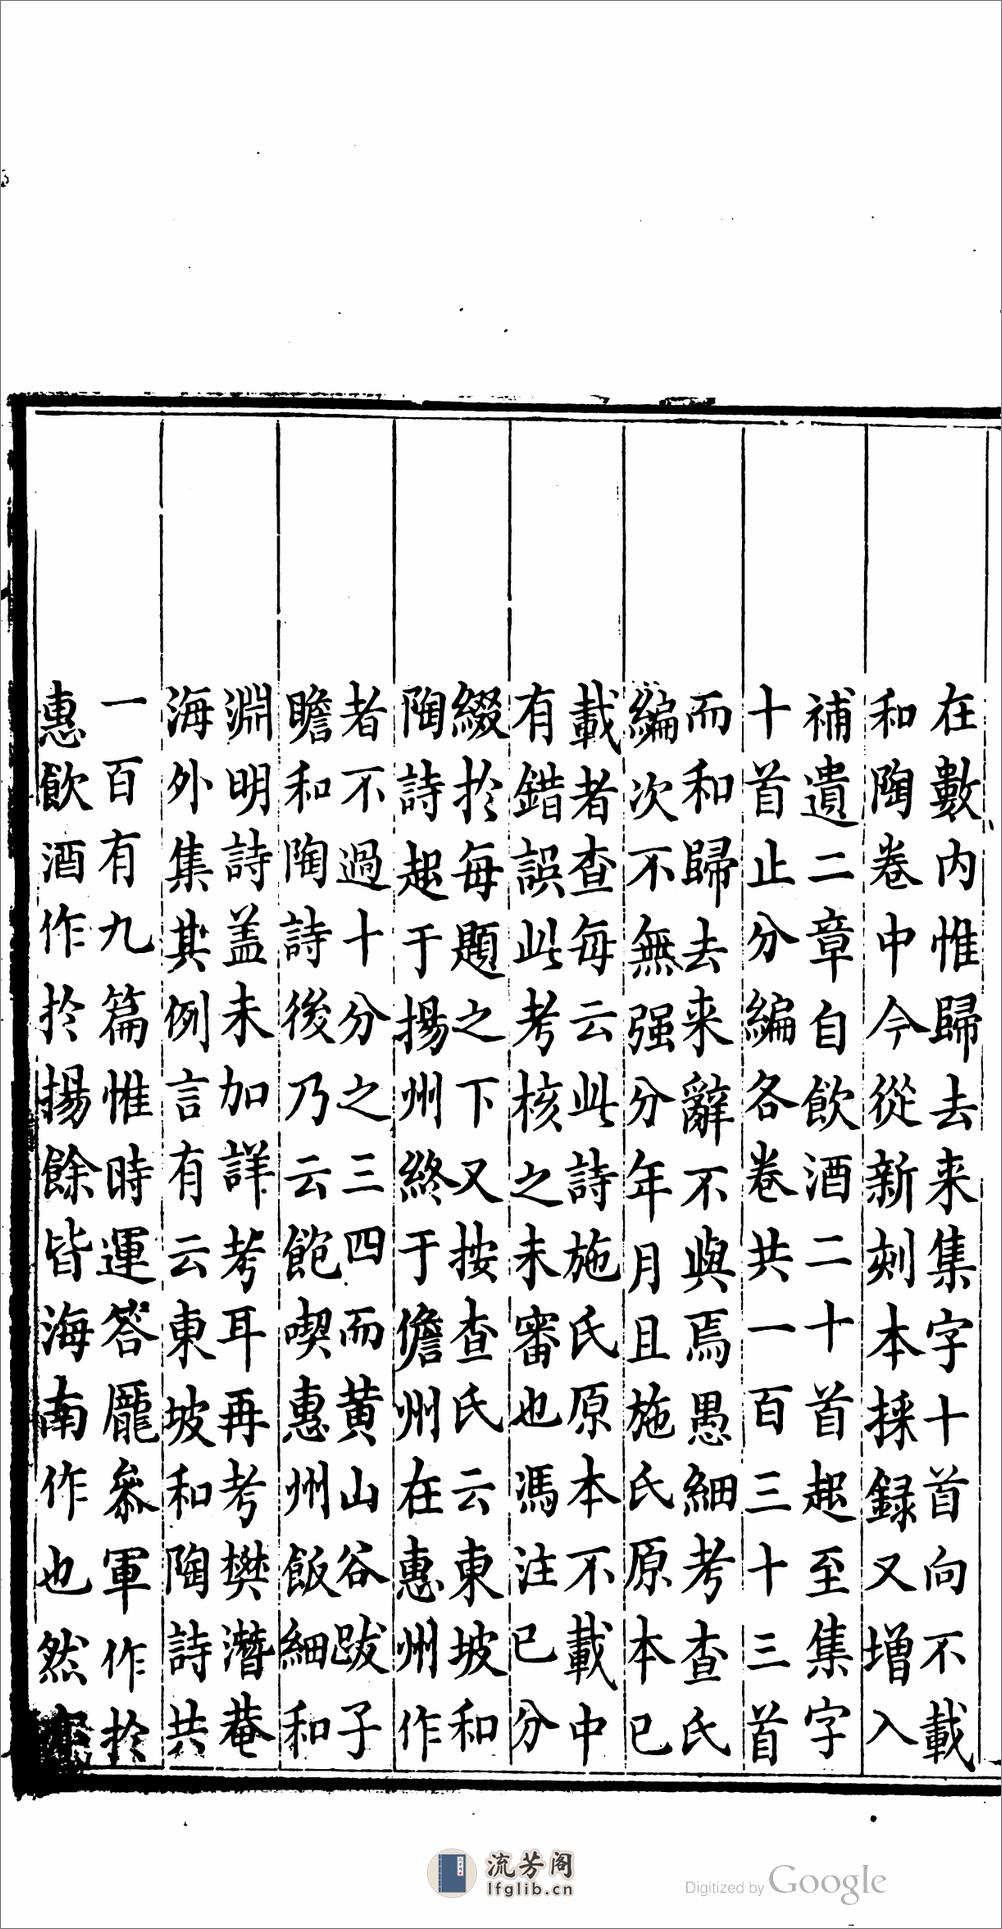 在數内惟歸去来集字十首向不載
和陶卷中今從新刻本採録又增入
補遺二章自飲酒二十首起至集字
十首止分編各卷共一百三十三首
而和歸去来辭不與焉愚細考查氏
編次不無强分年月且施氏原本已
載者查每云此詩施氏原本不載中
有錯誤此考核之未審也馮注已分
綴扵每題之下又按查氏云東坡和
陶詩起于揚州終于儋州在惠州作
者不過十分之三四而黄山谷跋子
瞻和陶詩後乃云飽喫惠州飯細和
淵明詩盖未加詳考耳再考樊潛菴
海外集其例言有云東坡和陶詩共
一百有九篇惟時運答龎叅軍作扵
惠飲酒作扵揚餘皆海南作也然
流芳阁
lfglib.cn
Digitized by Google